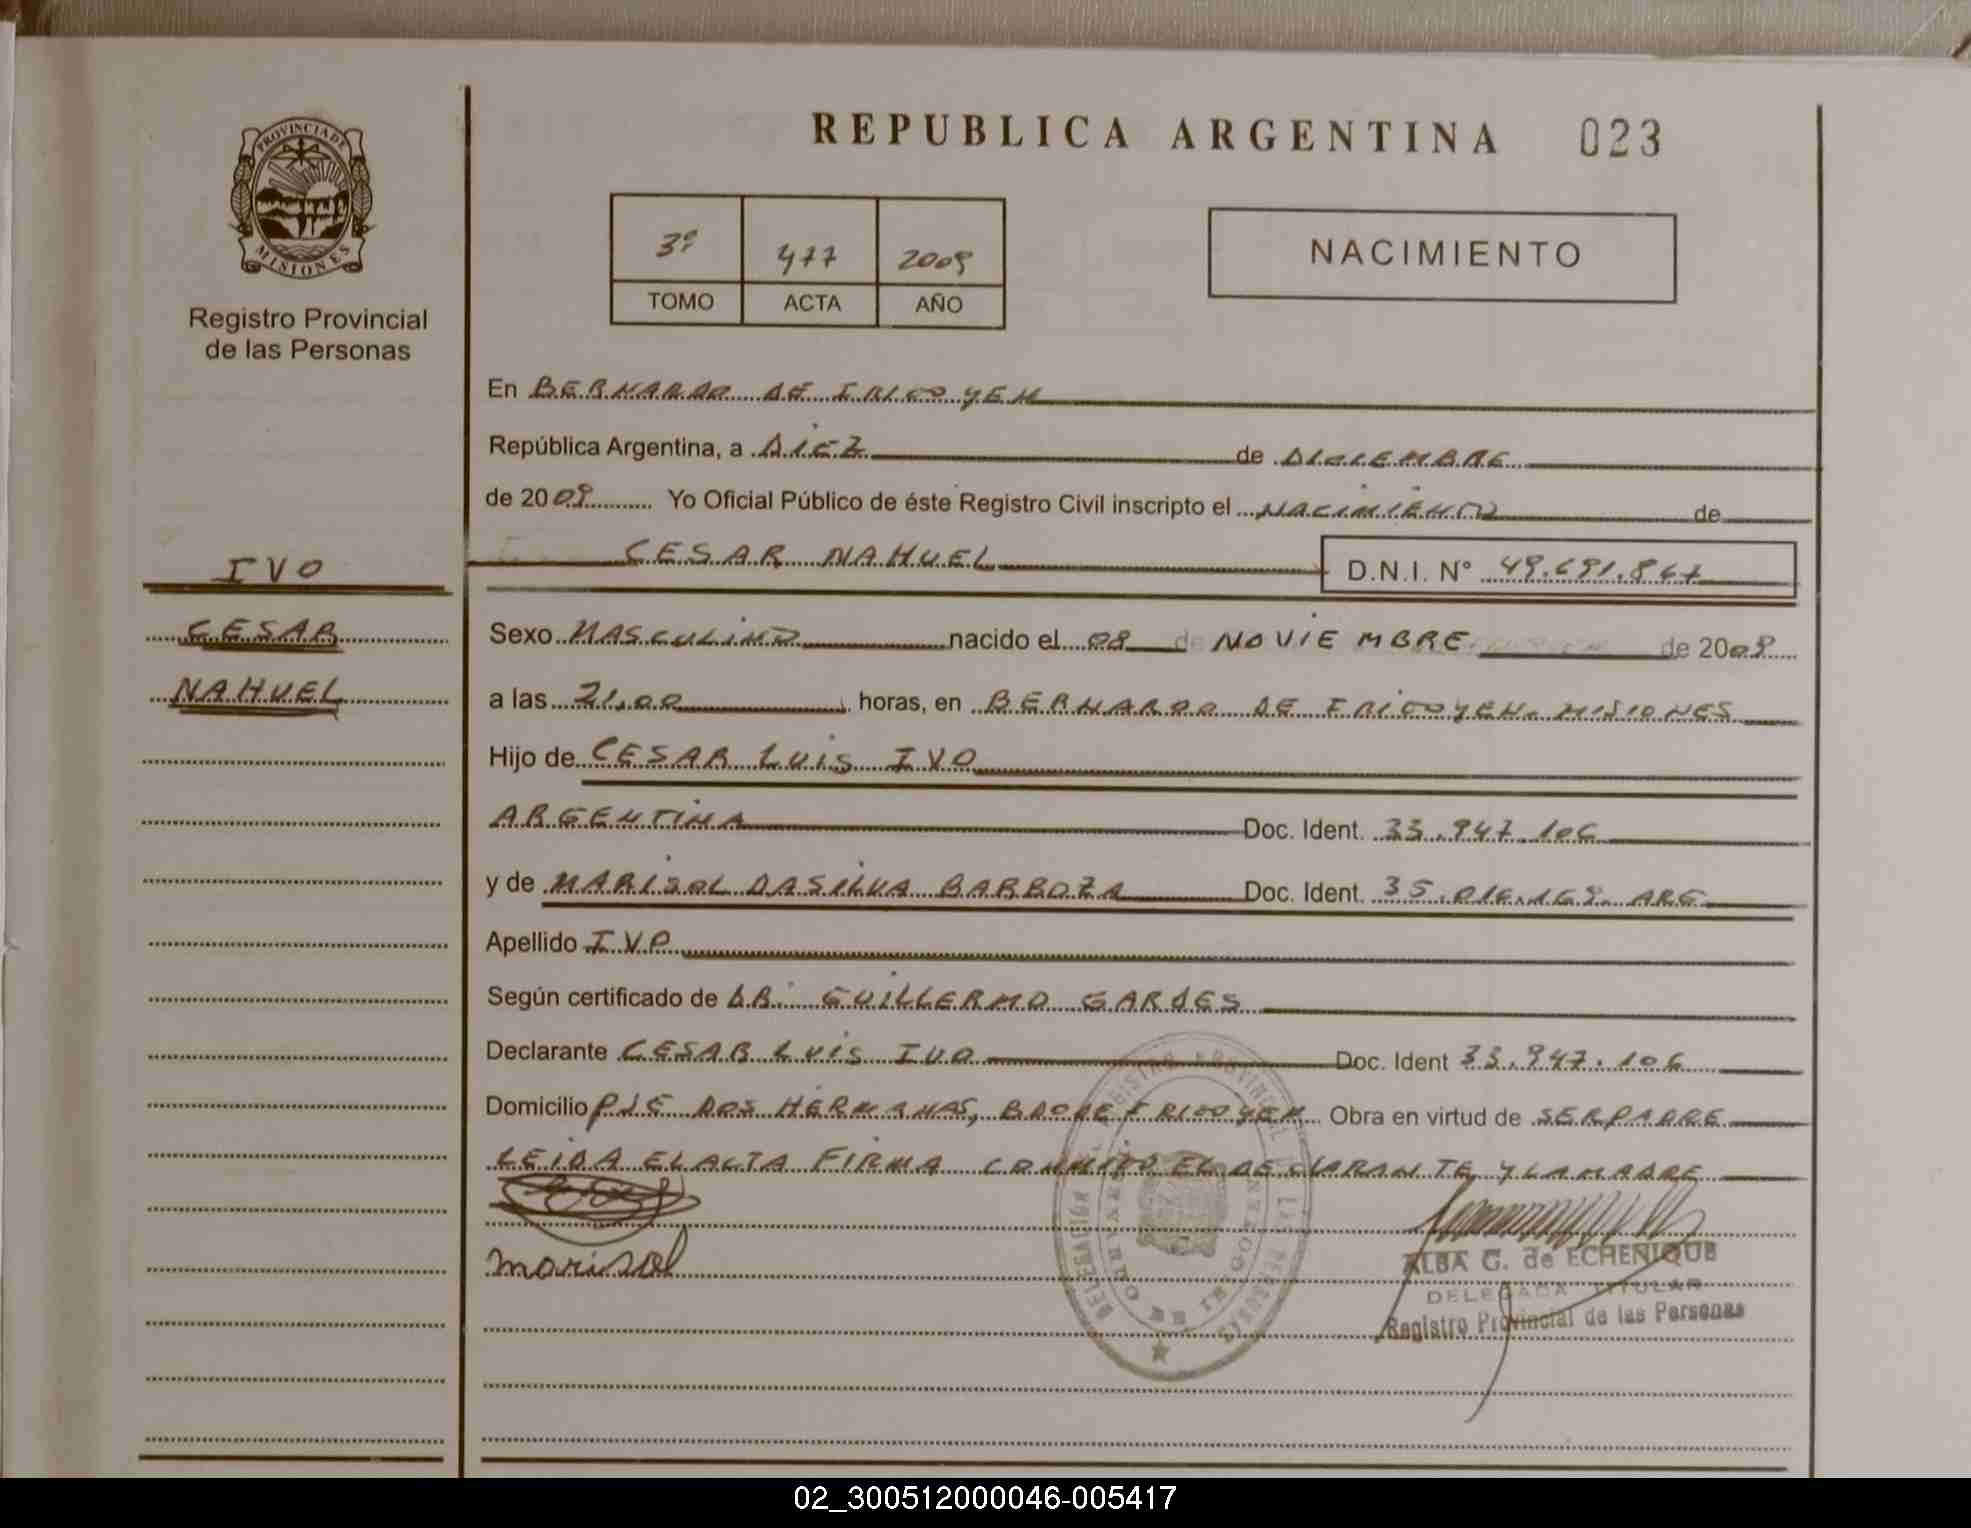 PROVINCIA DE
MISIONES
Registro Provincial
de las Personas
IVO
CESAR
NAHUEL
REPUBLICA ARGENTINA 023
3º 477 2009
TOMO ACTA AÑO
NACIMIENTO
En BERNARDO DE IRIGOYEN
República Argentina, a DIEZ de DICIEMBRE
de 2009 Yo Oficial Público de éste Registro Civil inscripto el NACIMIENTO de
CESAR NAHUEL D.N.I. Nº 49.691.867
Sexo MASCULINO nacido el 08 de NOVIEMBRE de 2009
a las 21,00 horas, en BERNARDO DE IRIGOYEN. MISIONES
Hijo de CESAR LUIS IVO
ARGENTINA Doc. Ident. 33.947.106
y de MARISOL DASILVA BARBOZA Doc. Ident. 35.016.169. ARG
Apellido IVO
Según certificado de DR. GUILLERMO GARDES
Declarante CESAR LUIS IVO Doc. Ident 33.947.106
Domicilio PJE DOS HERMANAS, BDO DE IRIGOYEN Obra en virtud de SER PADRE
LEIDA EL ACTA FIRMA CONMIGO EL DECLARANTE Y LA MADRE
marisol
ALBA G. de ECHENIQUE
DELEGADA TITULAR
Registro Provincial de las Personas
02_300512000046-005417